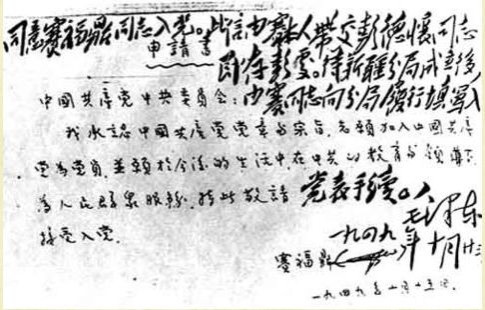 同意賽福鼎同志入党。此信由賽本人帶交彭德懷同志
即存彭處。待新疆分局成立後,
由賽同志向分局履行填写入
党表手续。
毛泽东
一九四九年十月廿三
申請書
中國共产党中央委員会：
我承認中國共產党党章与宗旨，志願加入中國共产
党為党員，並願於今後的生活中，在中共的教育与領導下
為人民群衆服務，特此敬請
接受入党。
賽福鼎
一九四九年十月十五日